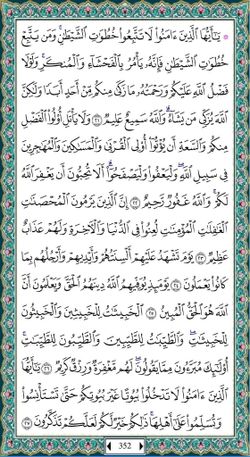 ۞ يَٰٓأَيُّهَا ٱلَّذِينَ ءَامَنُوا۟ لَا تَتَّبِعُوا۟ خُطُوَٰتِ ٱلشَّيْطَٰنِ ۚ وَمَن يَتَّبِعْ
خُطُوَٰتِ ٱلشَّيْطَٰنِ فَإِنَّهُۥ يَأْمُرُ بِٱلْفَحْشَآءِ وَٱلْمُنكَرِ ۚ وَلَوْلَا
فَضْلُ ٱللَّهِ عَلَيْكُمْ وَرَحْمَتُهُۥ مَا زَكَىٰ مِنكُم مِّنْ أَحَدٍ أَبَدًا وَلَٰكِنَّ
ٱللَّهَ يُزَكِّى مَن يَشَآءُ ۗ وَٱللَّهُ سَمِيعٌ عَلِيمٌ ٢١ وَلَا يَأْتَلِ أُو۟لُوا۟ ٱلْفَضْلِ
مِنكُمْ وَٱلسَّعَةِ أَن يُؤْتُوٓا۟ أُو۟لِى ٱلْقُرْبَىٰ وَٱلْمَسَٰكِينَ وَٱلْمُهَٰجِرِينَ
فِى سَبِيلِ ٱللَّهِ ۖ وَلْيَعْفُوا۟ وَلْيَصْفَحُوٓا۟ ۗ أَلَا تُحِبُّونَ أَن يَغْفِرَ ٱللَّهُ
لَكُمْ ۗ وَٱللَّهُ غَفُورٌ رَّحِيمٌ ٢٢ إِنَّ ٱلَّذِينَ يَرْمُونَ ٱلْمُحْصَنَٰتِ
ٱلْغَٰفِلَٰتِ ٱلْمُؤْمِنَٰتِ لُعِنُوا۟ فِى ٱلدُّنْيَا وَٱلْءَاخِرَةِ وَلَهُمْ عَذَابٌ
عَظِيمٌ ٢٣ يَوْمَ تَشْهَدُ عَلَيْهِمْ أَلْسِنَتُهُمْ وَأَيْدِيهِمْ وَأَرْجُلُهُم بِمَا
كَانُوا۟ يَعْمَلُونَ ٢٤ يَوْمَئِذٍ يُوَفِّيهِمُ ٱللَّهُ دِينَهُمُ ٱلْحَقَّ وَيَعْلَمُونَ أَنَّ
ٱللَّهَ هُوَ ٱلْحَقُّ ٱلْمُبِينُ ٢٥ ٱلْخَبِيثَٰتُ لِلْخَبِيثِينَ وَٱلْخَبِيثُونَ
لِلْخَبِيثَٰتِ ۖ وَٱلطَّيِّبَٰتُ لِلطَّيِّبِينَ وَٱلطَّيِّبُونَ لِلطَّيِّبَٰتِ ۚ
أُو۟لَٰٓئِكَ مُبَرَّءُونَ مِمَّا يَقُولُونَ ۖ لَهُم مَّغْفِرَةٌ وَرِزْقٌ كَرِيمٌ ٢٦ يَٰٓأَيُّهَا
ٱلَّذِينَ ءَامَنُوا۟ لَا تَدْخُلُوا۟ بُيُوتًا غَيْرَ بُيُوتِكُمْ حَتَّىٰ تَسْتَأْنِسُوا۟
وَتُسَلِّمُوا۟ عَلَىٰٓ أَهْلِهَا ۚ ذَٰلِكُمْ خَيْرٌ لَّكُمْ لَعَلَّكُمْ تَذَكَّرُونَ ٢٧
352